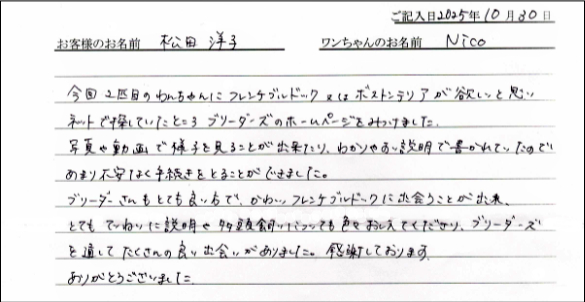 ご記入日2025年10月30日
お客様のお名前 松田 洋子 ワンちゃんのお名前 Nico
今回 2匹目のわんちゃんに フレンチブルドック又は ボストンテリアが欲しいと思い
ネットで探していたところ ブリーダーズのホームページをみつけました.
写真や動画で様子を見ることが出来たり、わかりやすい説明で書かれていたので
あまり不安なく手続きをとることができました。
ブリーダーさんもとても良い方で、かわいいフレンチブルドックに出会うことが出来、
とてもていねいに説明や多頭飼いについても色々おしえてくださり、ブリーダーズ
を通して たくさんの良い出会いがありました。感謝しております.
ありがとうございました.